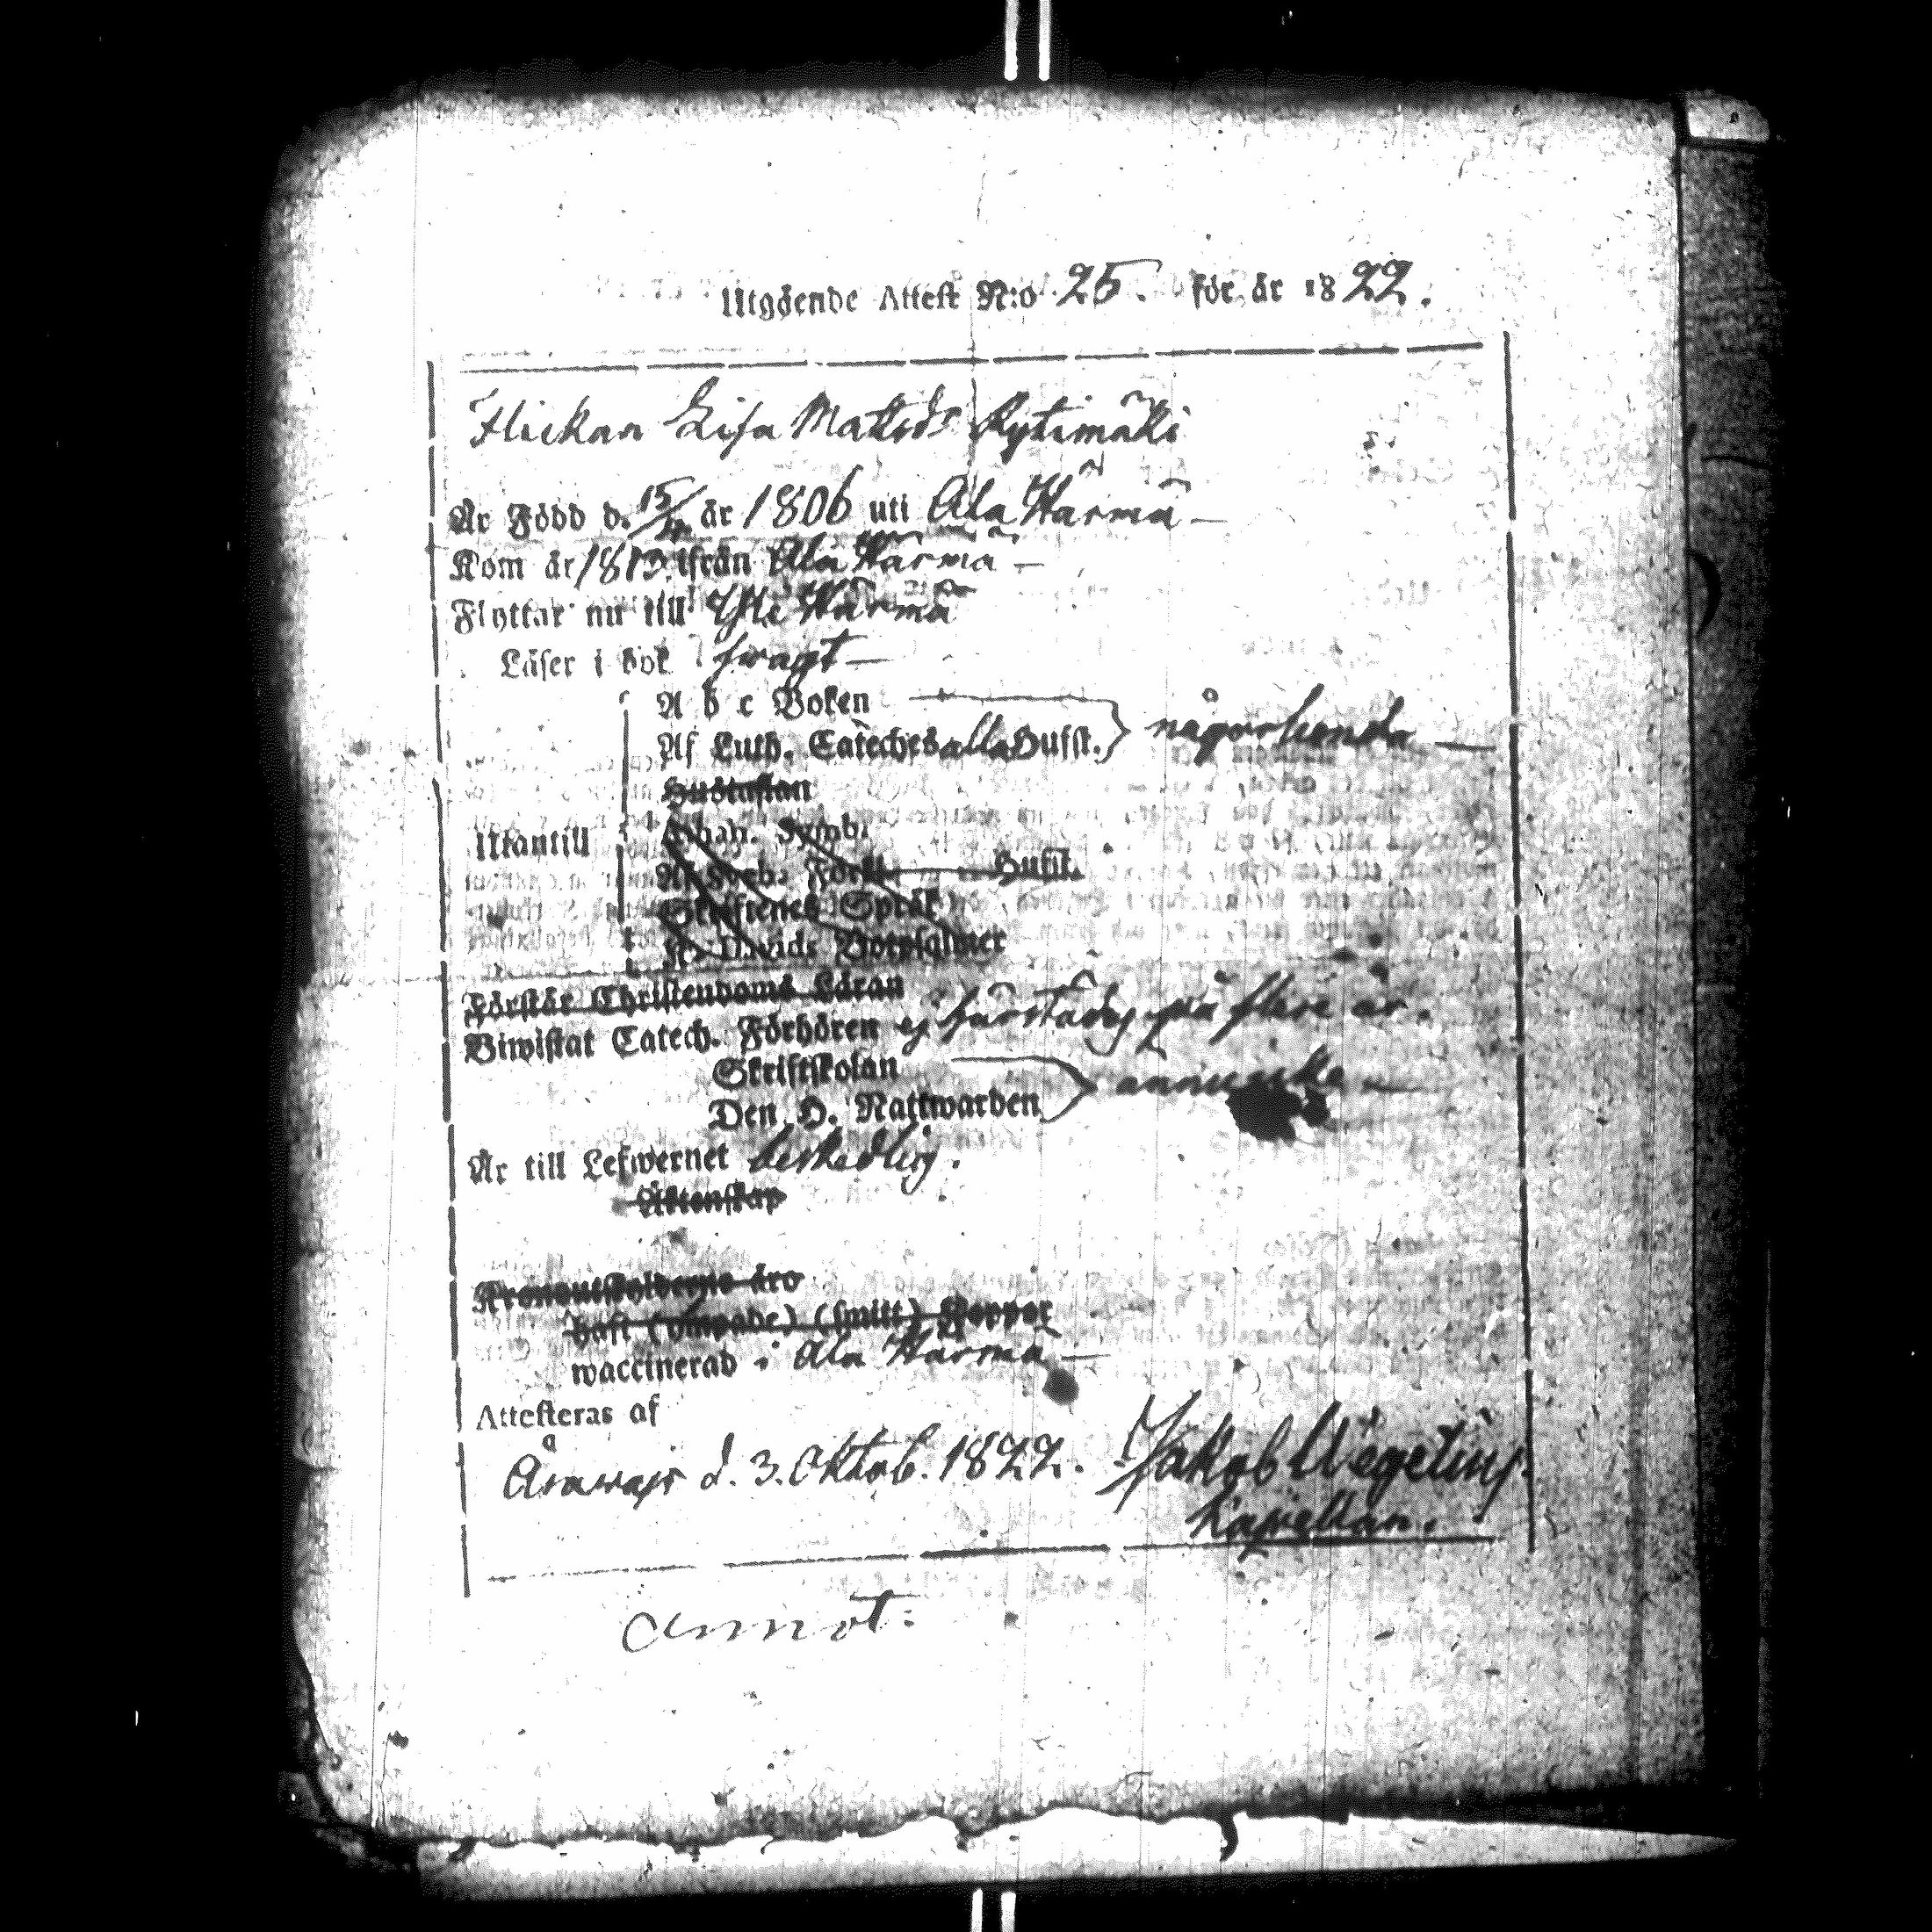 Utgående Attest N:o 25. för år 1822.
Flickan Lisa Matsd:r Rytimäki
Är Född d. 15/4 år 1806 uti Ala Härmä —
Kom år 1813 ifrån Ala Härmä —
Flyttar nu till Yli Härmä
Läser i bok swagt —
A b c Boken
Af Luth. Cateches alla Hufst. } någorlunda —
Hustaflan
Utantill
Athan. Symb.
Af Sveb. Förkl. Hufst.
Skriftenes Språk
Af Davids Botpsalmer
Förstår Christendoms Läran
Biwistat Catech. Förhören ej härstädes på flere år.
Skriftskolan
Den H. Nattwarden } annu icke —
Är till Lefwernet beskedlig.
Äktenskap
äro
haft (ympade) (smitt) Koppor
waccinerad i Ala Härmä —
Attesteras af
d. 3. Oktob. 1822. Jakob Wegelius.
Kapellan.
Annot: